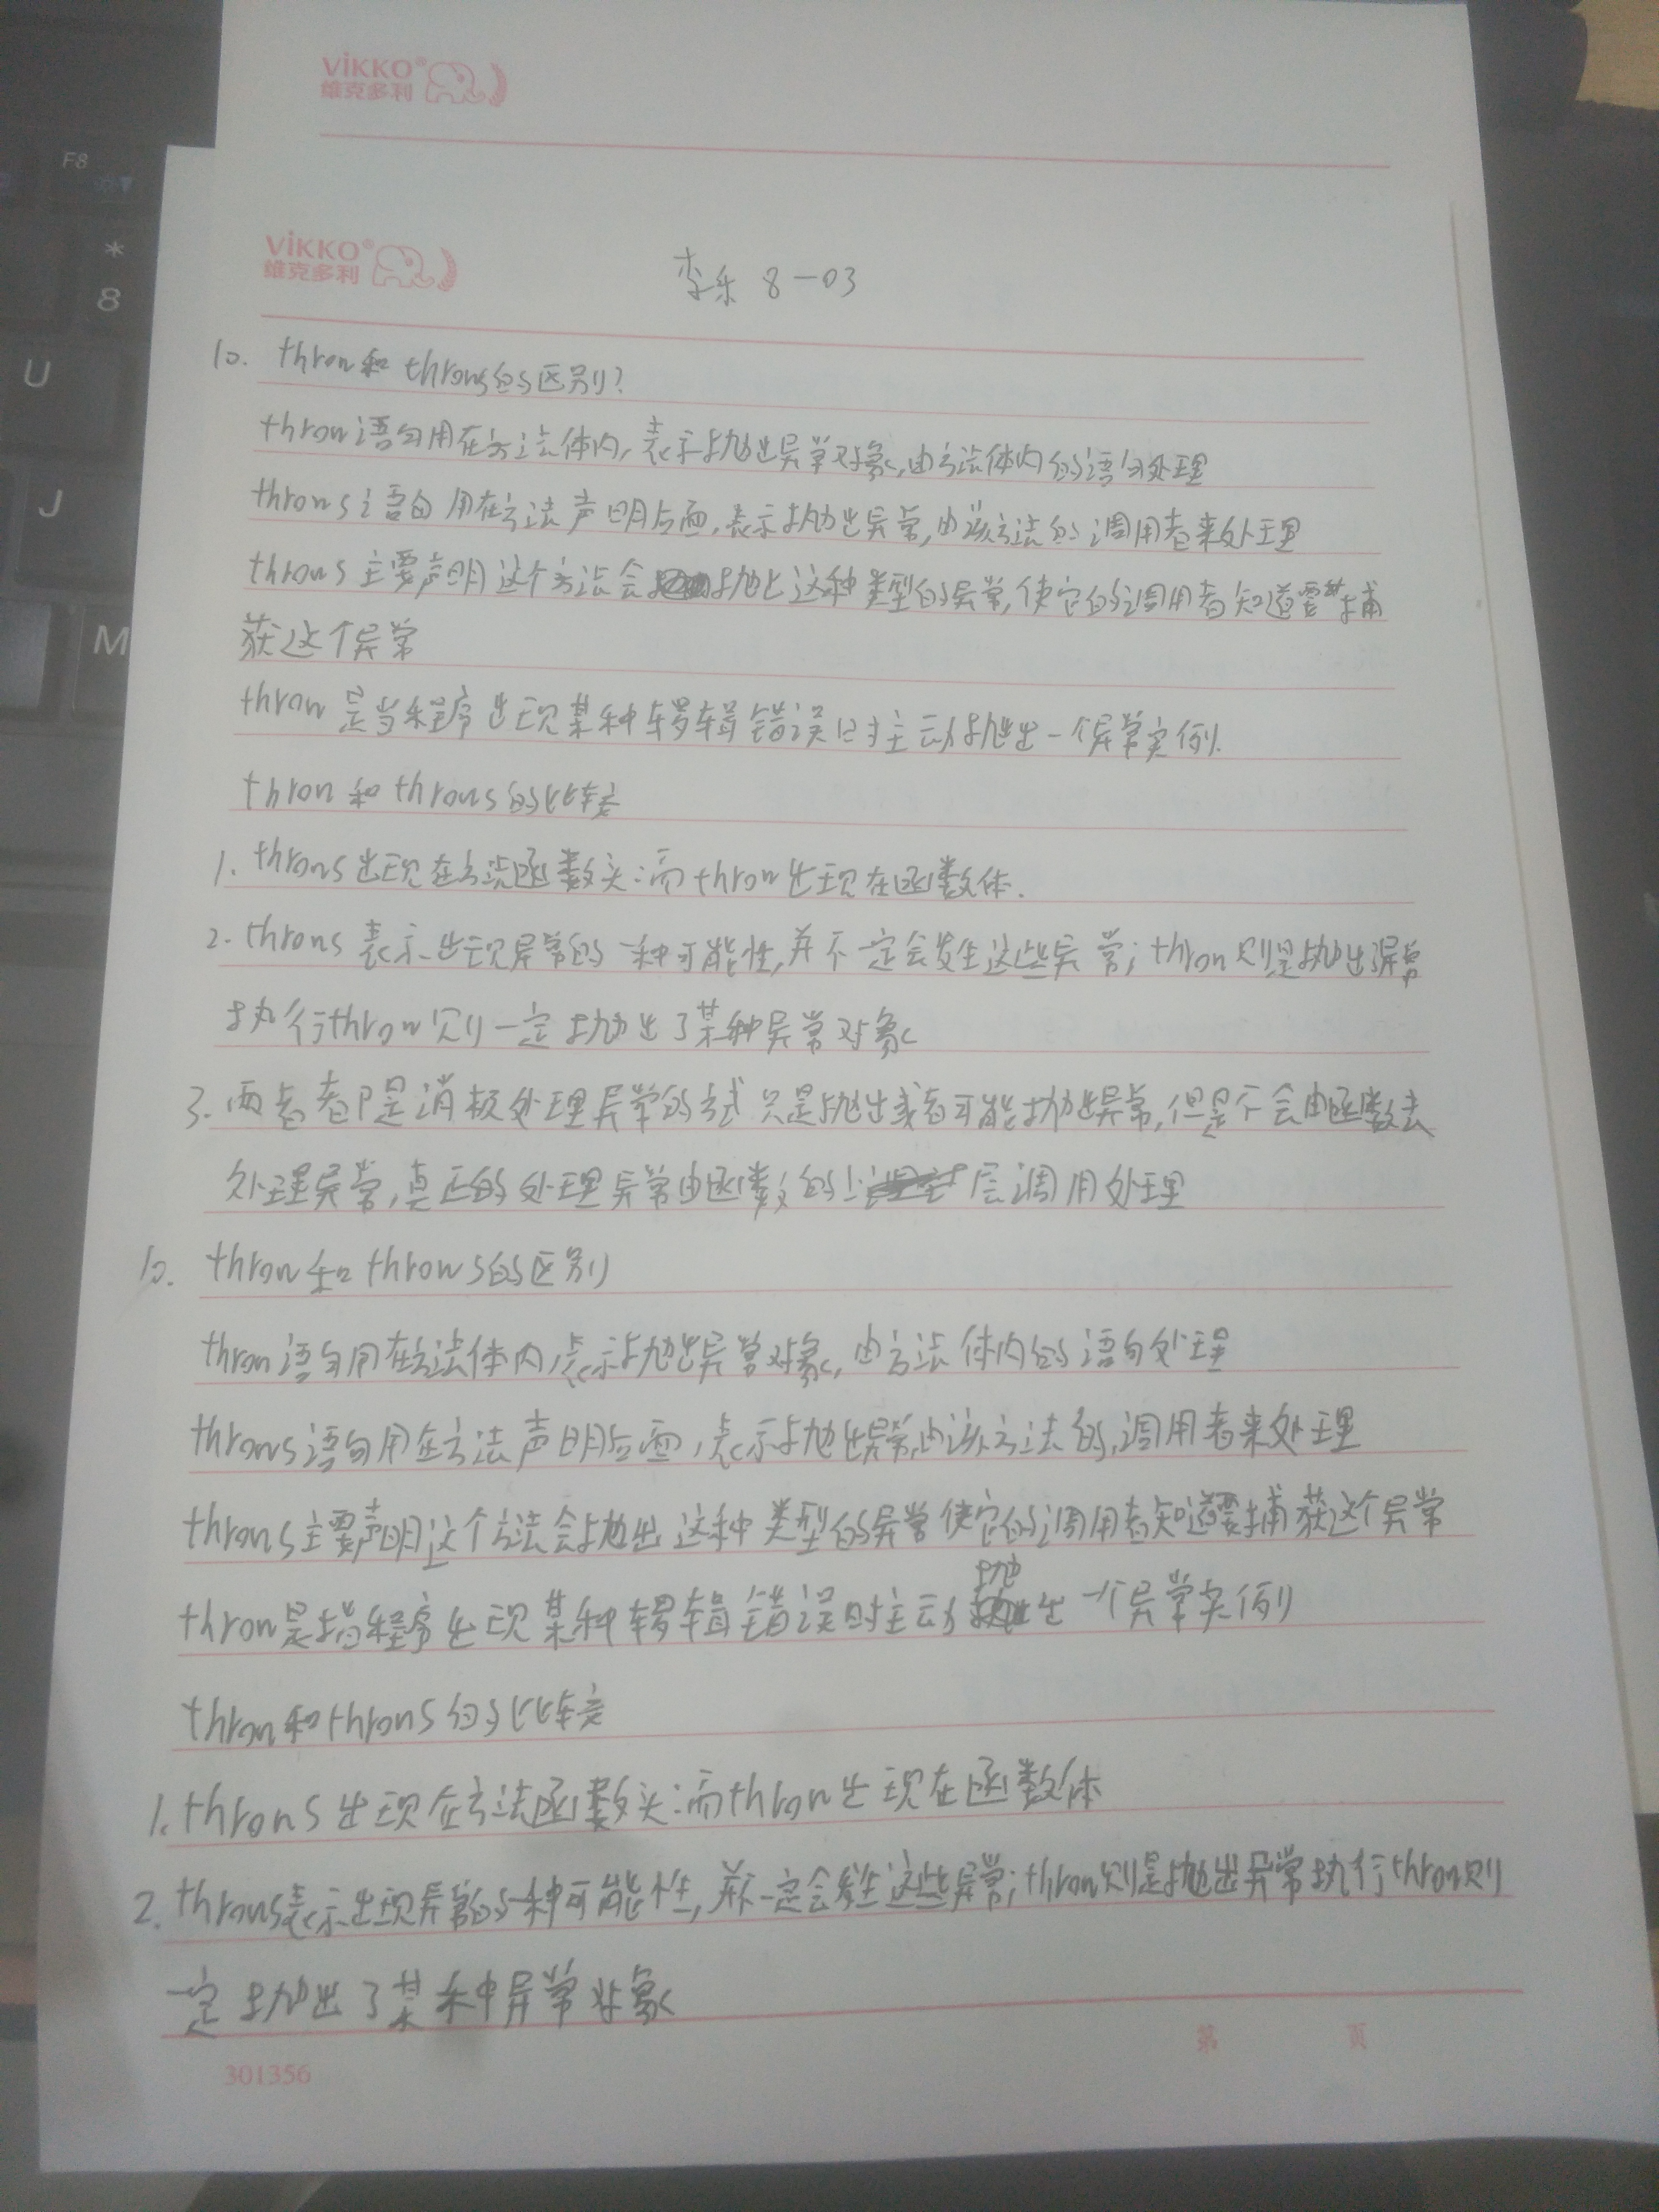 VIKKO®
维克多利
VIKKO®
维克多利
李乐 8-03
10. throw和throws的区别?
throw语句用在方法体内,表示抛出异常对象,由方法体内的语句处理
throws语句用在方法声明后面,表示抛出异常,由该方法的调用者来处理
throws主要声明这个方法会抛出这种类型的异常,使它的调用者知道要捕
获这个异常
throw是当程序出现某种逻辑错误时主动抛出一个异常实例.
throw和throws的比较
1. throws出现在方法函数头;而throw出现在函数体.
2. throws表示出现异常的一种可能性,并不一定会发生这些异常;throw则是抛出异常
执行throw则一定抛出了某种异常对象
3. 两者都是消极处理异常的方式只是抛出或者可能抛出异常,但是不会由函数去
处理异常,真正的处理异常由函数的上层调用处理
10. throw和throws的区别
throw语句用在方法体内,表示抛出异常对象,由方法体内的语句处理
throws语句用在方法声明后面,表示抛出异常,由该方法的调用者来处理
throws主要声明这个方法会抛出这种类型的异常使它的调用者知道要捕获这个异常
throw是指程序出现某种逻辑错误时主动抛出一个异常实例
throw和throws的比较
1. throws出现在方法函数头;而throw出现在函数体
2. throws表示出现异常的一种可能性,并不一定会发生这些异常;throw则是抛出异常执行throw则
一定抛出了某种异常对象
第 页
301356
F8
*
8
U
J
M